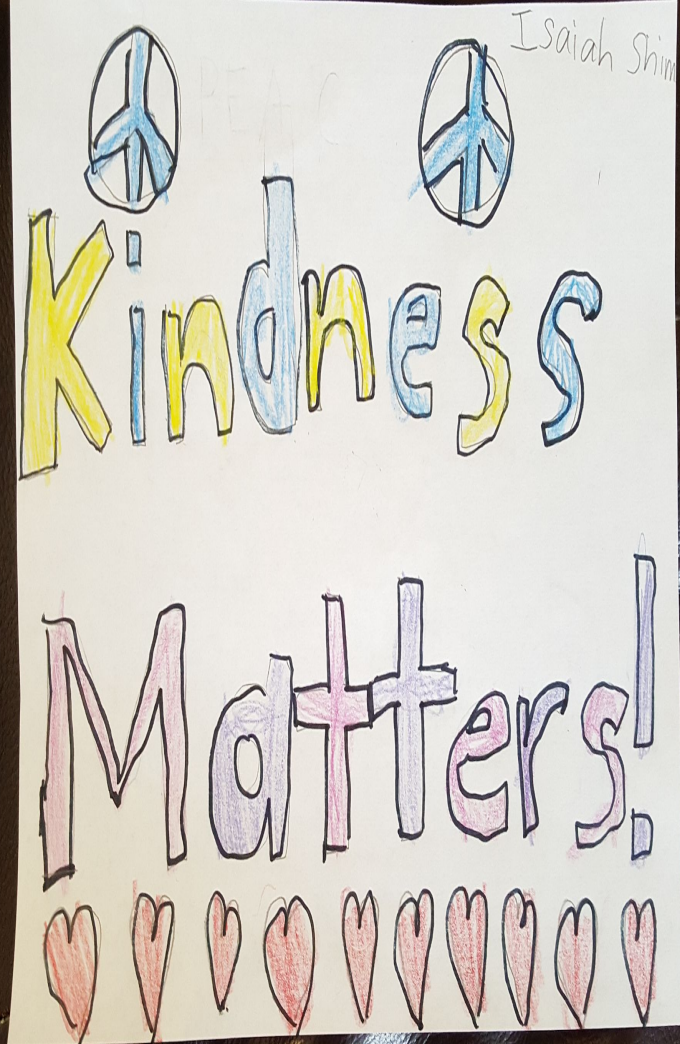 Isaiah Shim
Kindness
Matters!